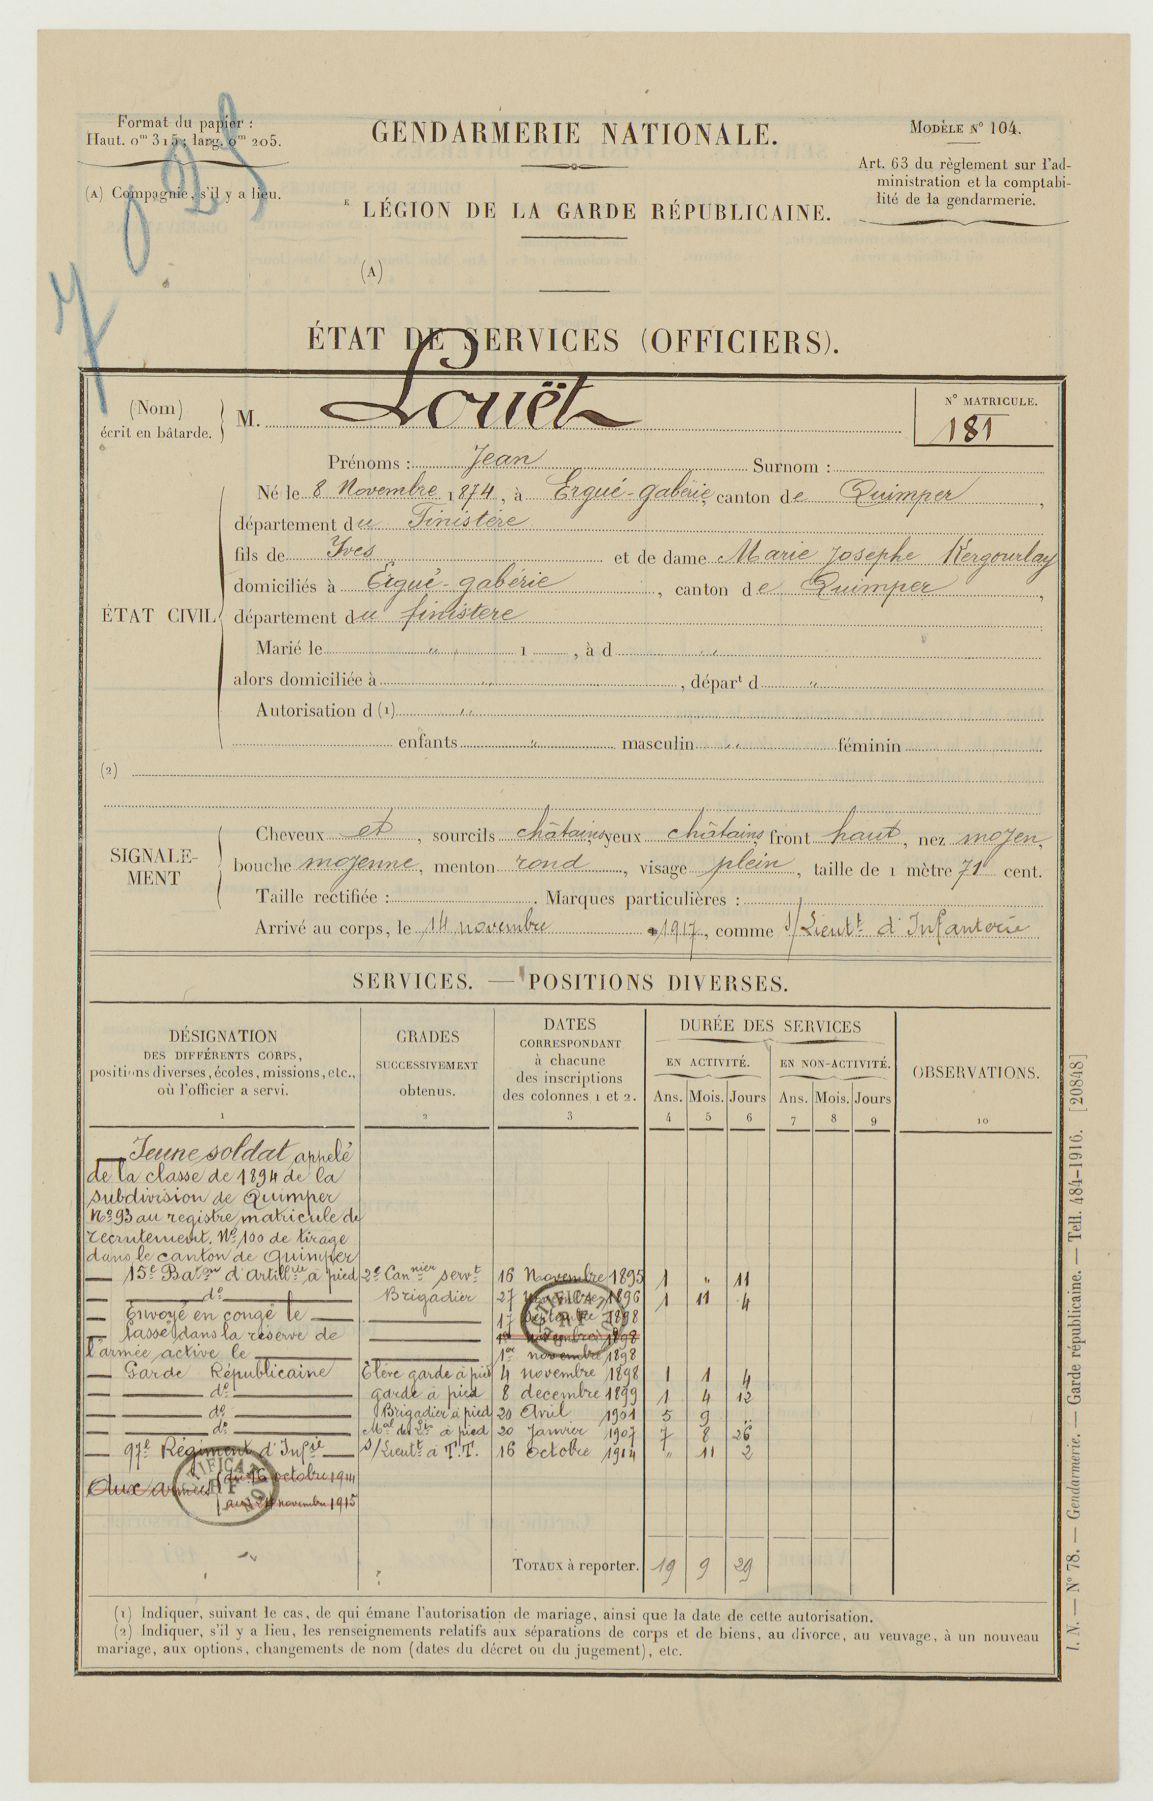 Format du papier :
Haut. 0ᵐ 315 ; larg. 0ᵐ 205.
(A) Compagnie, s'il y a lieu.
7025
GENDARMERIE NATIONALE.
ᴱ LÉGION DE LA GARDE RÉPUBLICAINE.
(A)
MODÈLE N° 104.
Art. 63 du règlement sur l'ad-
ministration et la comptabi-
lité de la gendarmerie.
ÉTAT DE SERVICES (OFFICIERS).
(Nom)
écrit en bâtarde.
M. Louët
N° MATRICULE.
181
Prénoms : Jean Surnom :
ÉTAT CIVIL
Né le 8 Novembre 1874, à Ergué-gabérie, canton de Quimper,
département du Finistère
fils de Yves et de dame Marie Josephe Kergourlay
domiciliés à Ergué-gabérie, canton de Quimper,
département du finistere
Marié le " 1 , à d "
alors domiciliée à " , départ d "
Autorisation d (1) "
enfants " masculin " féminin
(2)
SIGNALE-
MENT
Cheveux et , sourcils châtains, yeux châtains, front haut, nez moyen,
bouche moyenne, menton rond, visage plein, taille de 1 mètre 71 cent.
Taille rectifiée : . Marques particulières :
Arrivé au corps, le 14 novembre 1917, comme s/Lieutt d'Infanterie
SERVICES. — POSITIONS DIVERSES.
DÉSIGNATION
DES DIFFÉRENTS CORPS,
positions diverses, écoles, missions, etc.,
où l'officier a servi.
1
GRADES
SUCCESSIVEMENT
obtenus.
2
DATES
CORRESPONDANT
à chacune
des inscriptions
des colonnes 1 et 2.
3
DURÉE DES SERVICES
EN ACTIVITÉ. EN NON-ACTIVITÉ.
Ans. Mois. Jours Ans. Mois. Jours
4 5 6 7 8 9
OBSERVATIONS.
10
Jeune soldat appelé
de la classe de 1894 de la
subdivision de Quimper
N° 93 au registre matricule de
recrutement. N° 100 de tirage
dans le canton de Quimper
— 15e Baton d'Artillrie à pied 2e Cannier servt 16 Novembre 1895 1 " 11
— do Brigadier 27 1896 1 11 4
— Envoyé en congé le 17 Septembre 1898
— Passé dans la réserve de novembre 1898
l'armée active le 1er novembre 1898
— Garde Républicaine Élève garde à pied 4 novembre 1898 1 1 4
— do garde à pied 8 decembre 1899 1 4 12
— do Brigadier à pied 20 Avril 1901 5 9 "
— do Mal des Lis à pied 20 Janvier 1907 7 8 26
— 97e Régiment d'Infie s/Lieutt à T.T. 16 Octobre 1914 " 11 2
Aux armées du 16 octobre 1914
au 24 novembre 1915
RF
RF
TOTAUX à reporter. 19 9 29
(1) Indiquer, suivant le cas, de qui émane l'autorisation de mariage, ainsi que la date de cette autorisation.
(2) Indiquer, s'il y a lieu, les renseignements relatifs aux séparations de corps et de biens, au divorce, au veuvage, à un nouveau
mariage, aux options, changements de nom (dates du décret ou du jugement), etc.
I. N. — N° 78. — Gendarmerie. — Garde républicaine. — Tell. 484-1916. [20848]